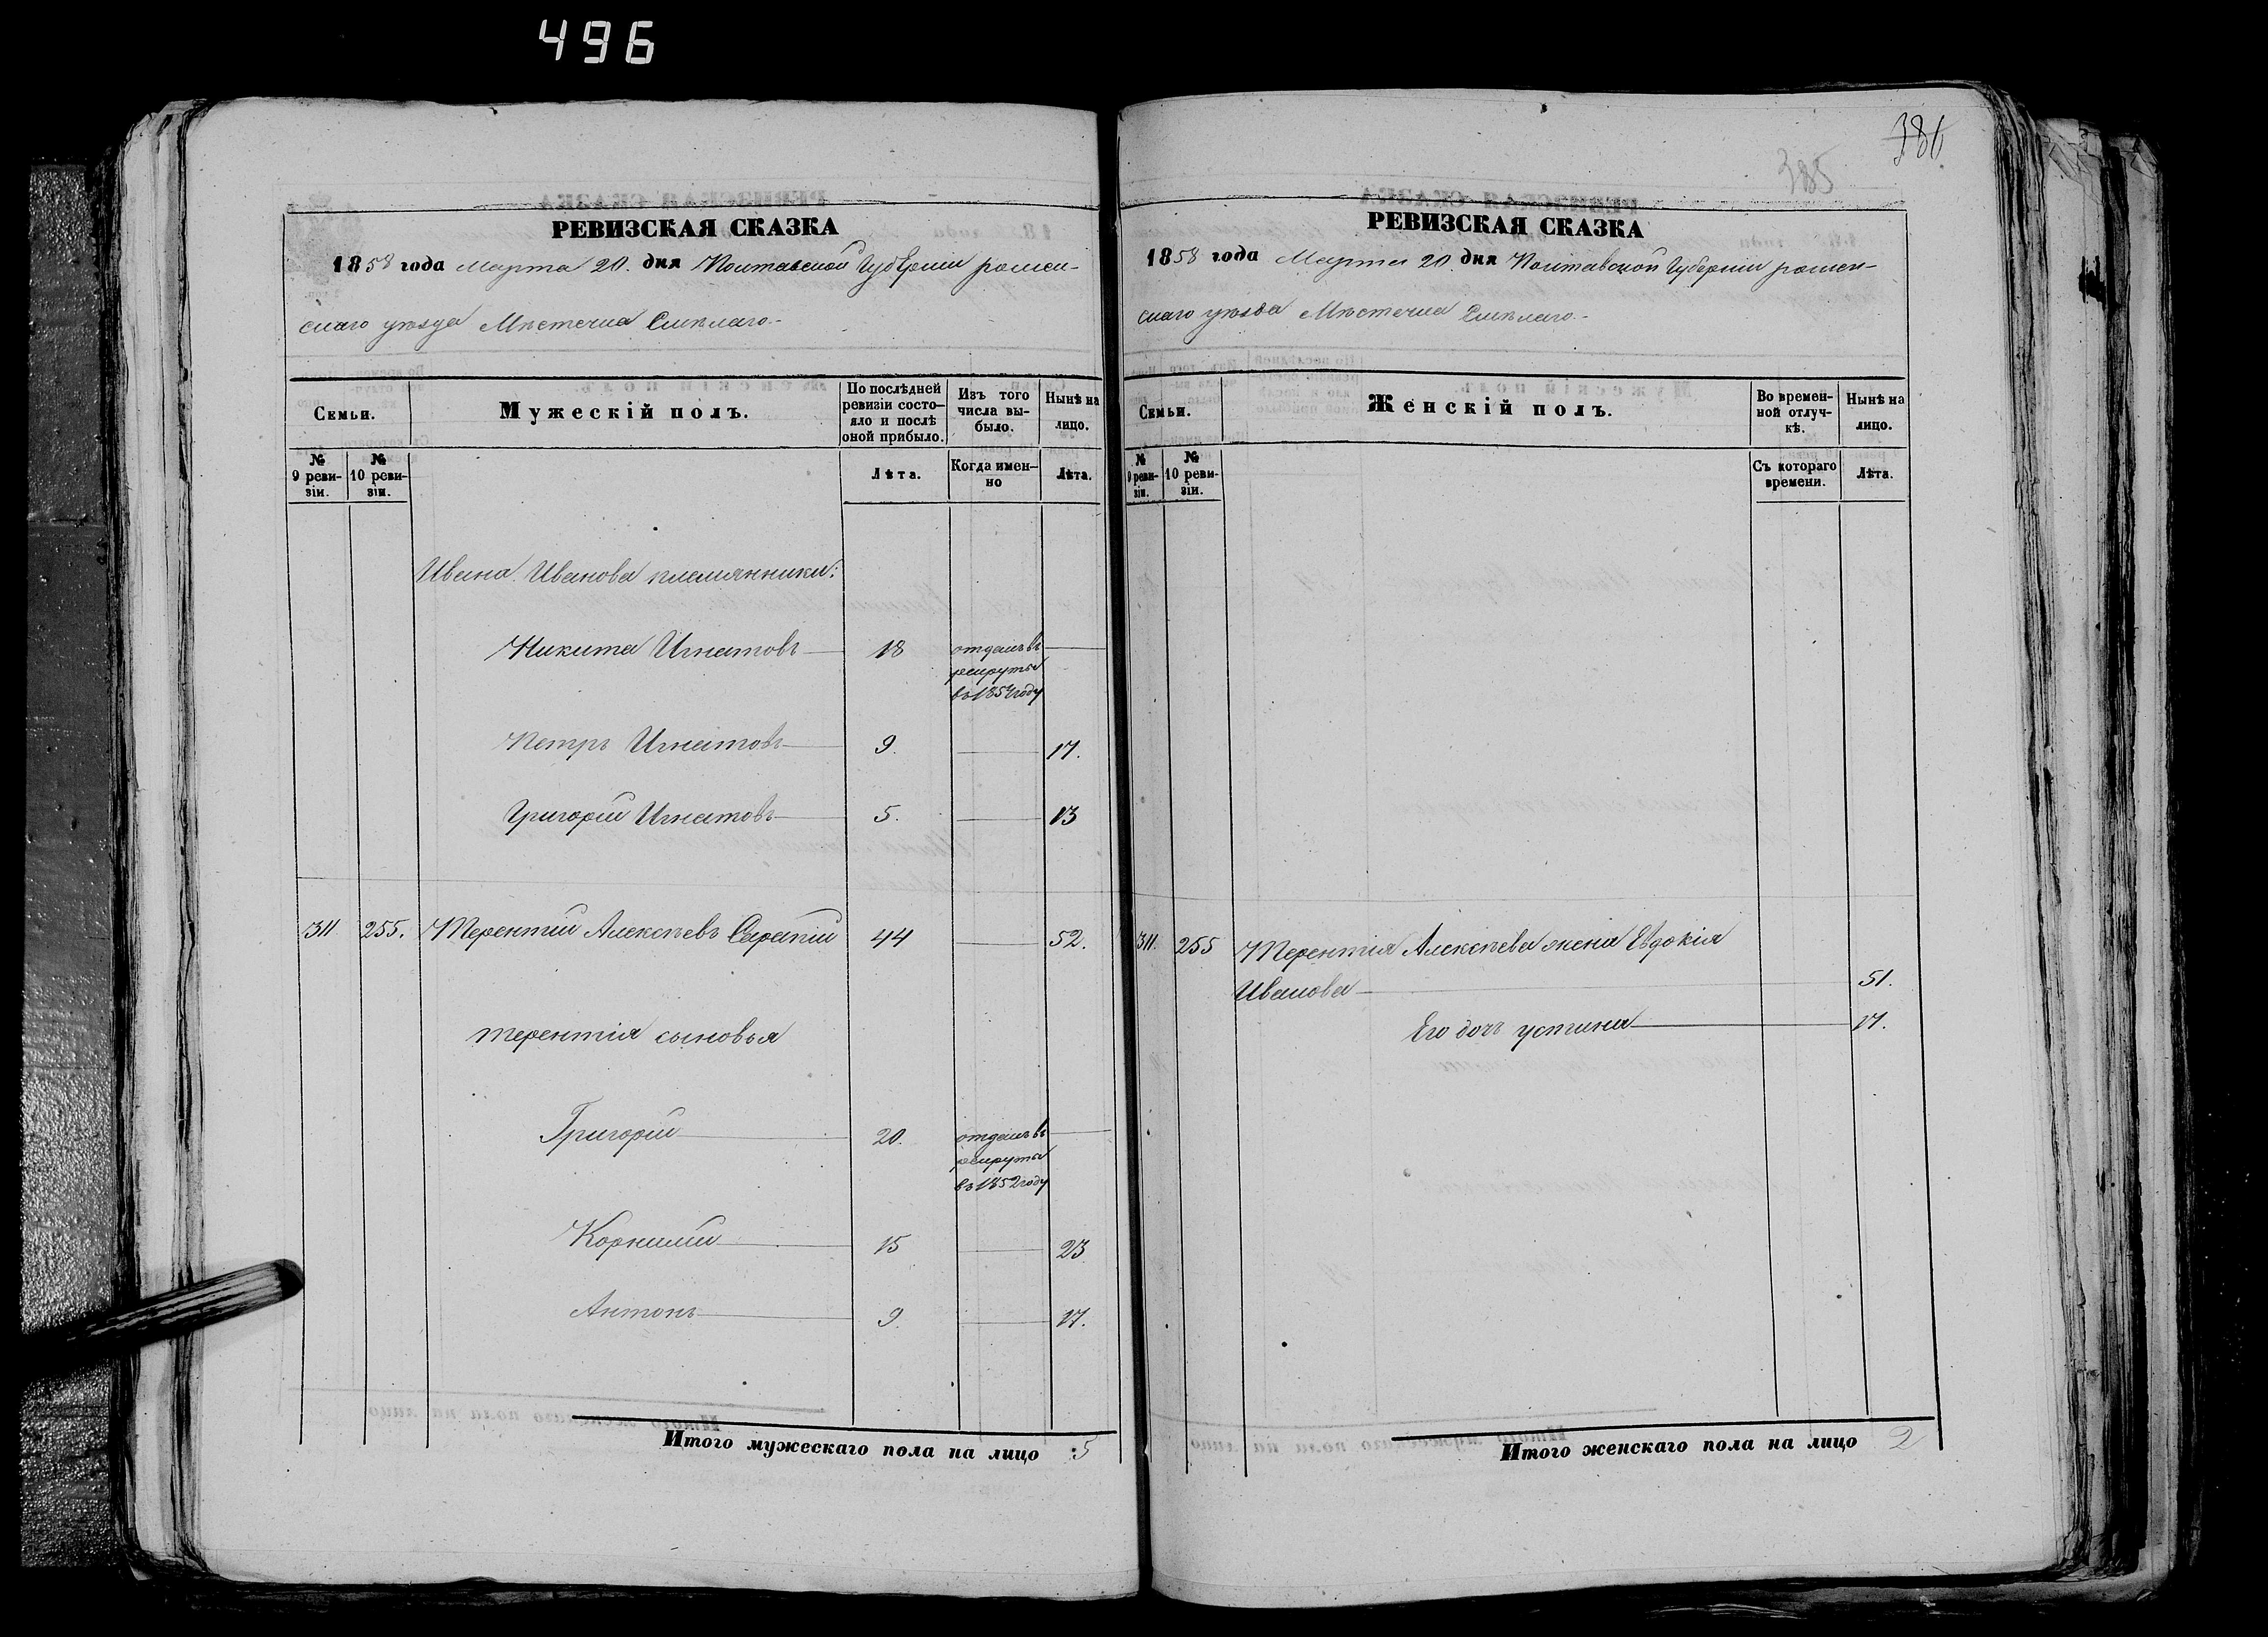 496
386
385
РЕВИЗСКАЯ СКАЗКА
1858 года Марта 20. дня Полтавской Губерніи ромен-
скаго уѣзда Мѣстечка Смѣлаго.-
Семьи.
Мужескій полъ.
По послѣдней
ревизіи состо-
яло и послѣ
оной прибыло.
Изъ того
числа вы-
было.
Нынѣ на
лицо.
№
9 реви-
зіи.
№
10 реви-
зіи.
Лѣта.
Когда имен-
но
Лѣта.
Ивана Иванова племянники:
Никита Игнатовъ 18 отданъ въ
рекруты
въ 1854 году
Петръ Игнатовъ 9. 17.
Григорій Игнатовъ 5. 13
311 255. Терентій Алексѣевъ 44 52.
терентія сыновья
Григорій 20. отданъ въ
рекруты
въ 1852 году
Корнилій 15 23
Антонъ 9. 17.
Итого мужескаго пола на лицо 5
РЕВИЗСКАЯ СКАЗКА
1858 года Марта 20. дня Полтавской Губерніи ромен-
скаго уѣзда Мѣстечка Смѣлаго.-
Семьи.
Женскій полъ.
Во времен-
ной отлуч-
кѣ.
Нынѣ на
лицо.
№
9 реви-
зіи.
№
10 реви-
зіи.
Съ котораго
времени.
Лѣта.
311. 255 Терентія Алексѣева жена Евдокія
Иванова 51.
Его дочь устина 17.
Итого женскаго пола на лицо 2